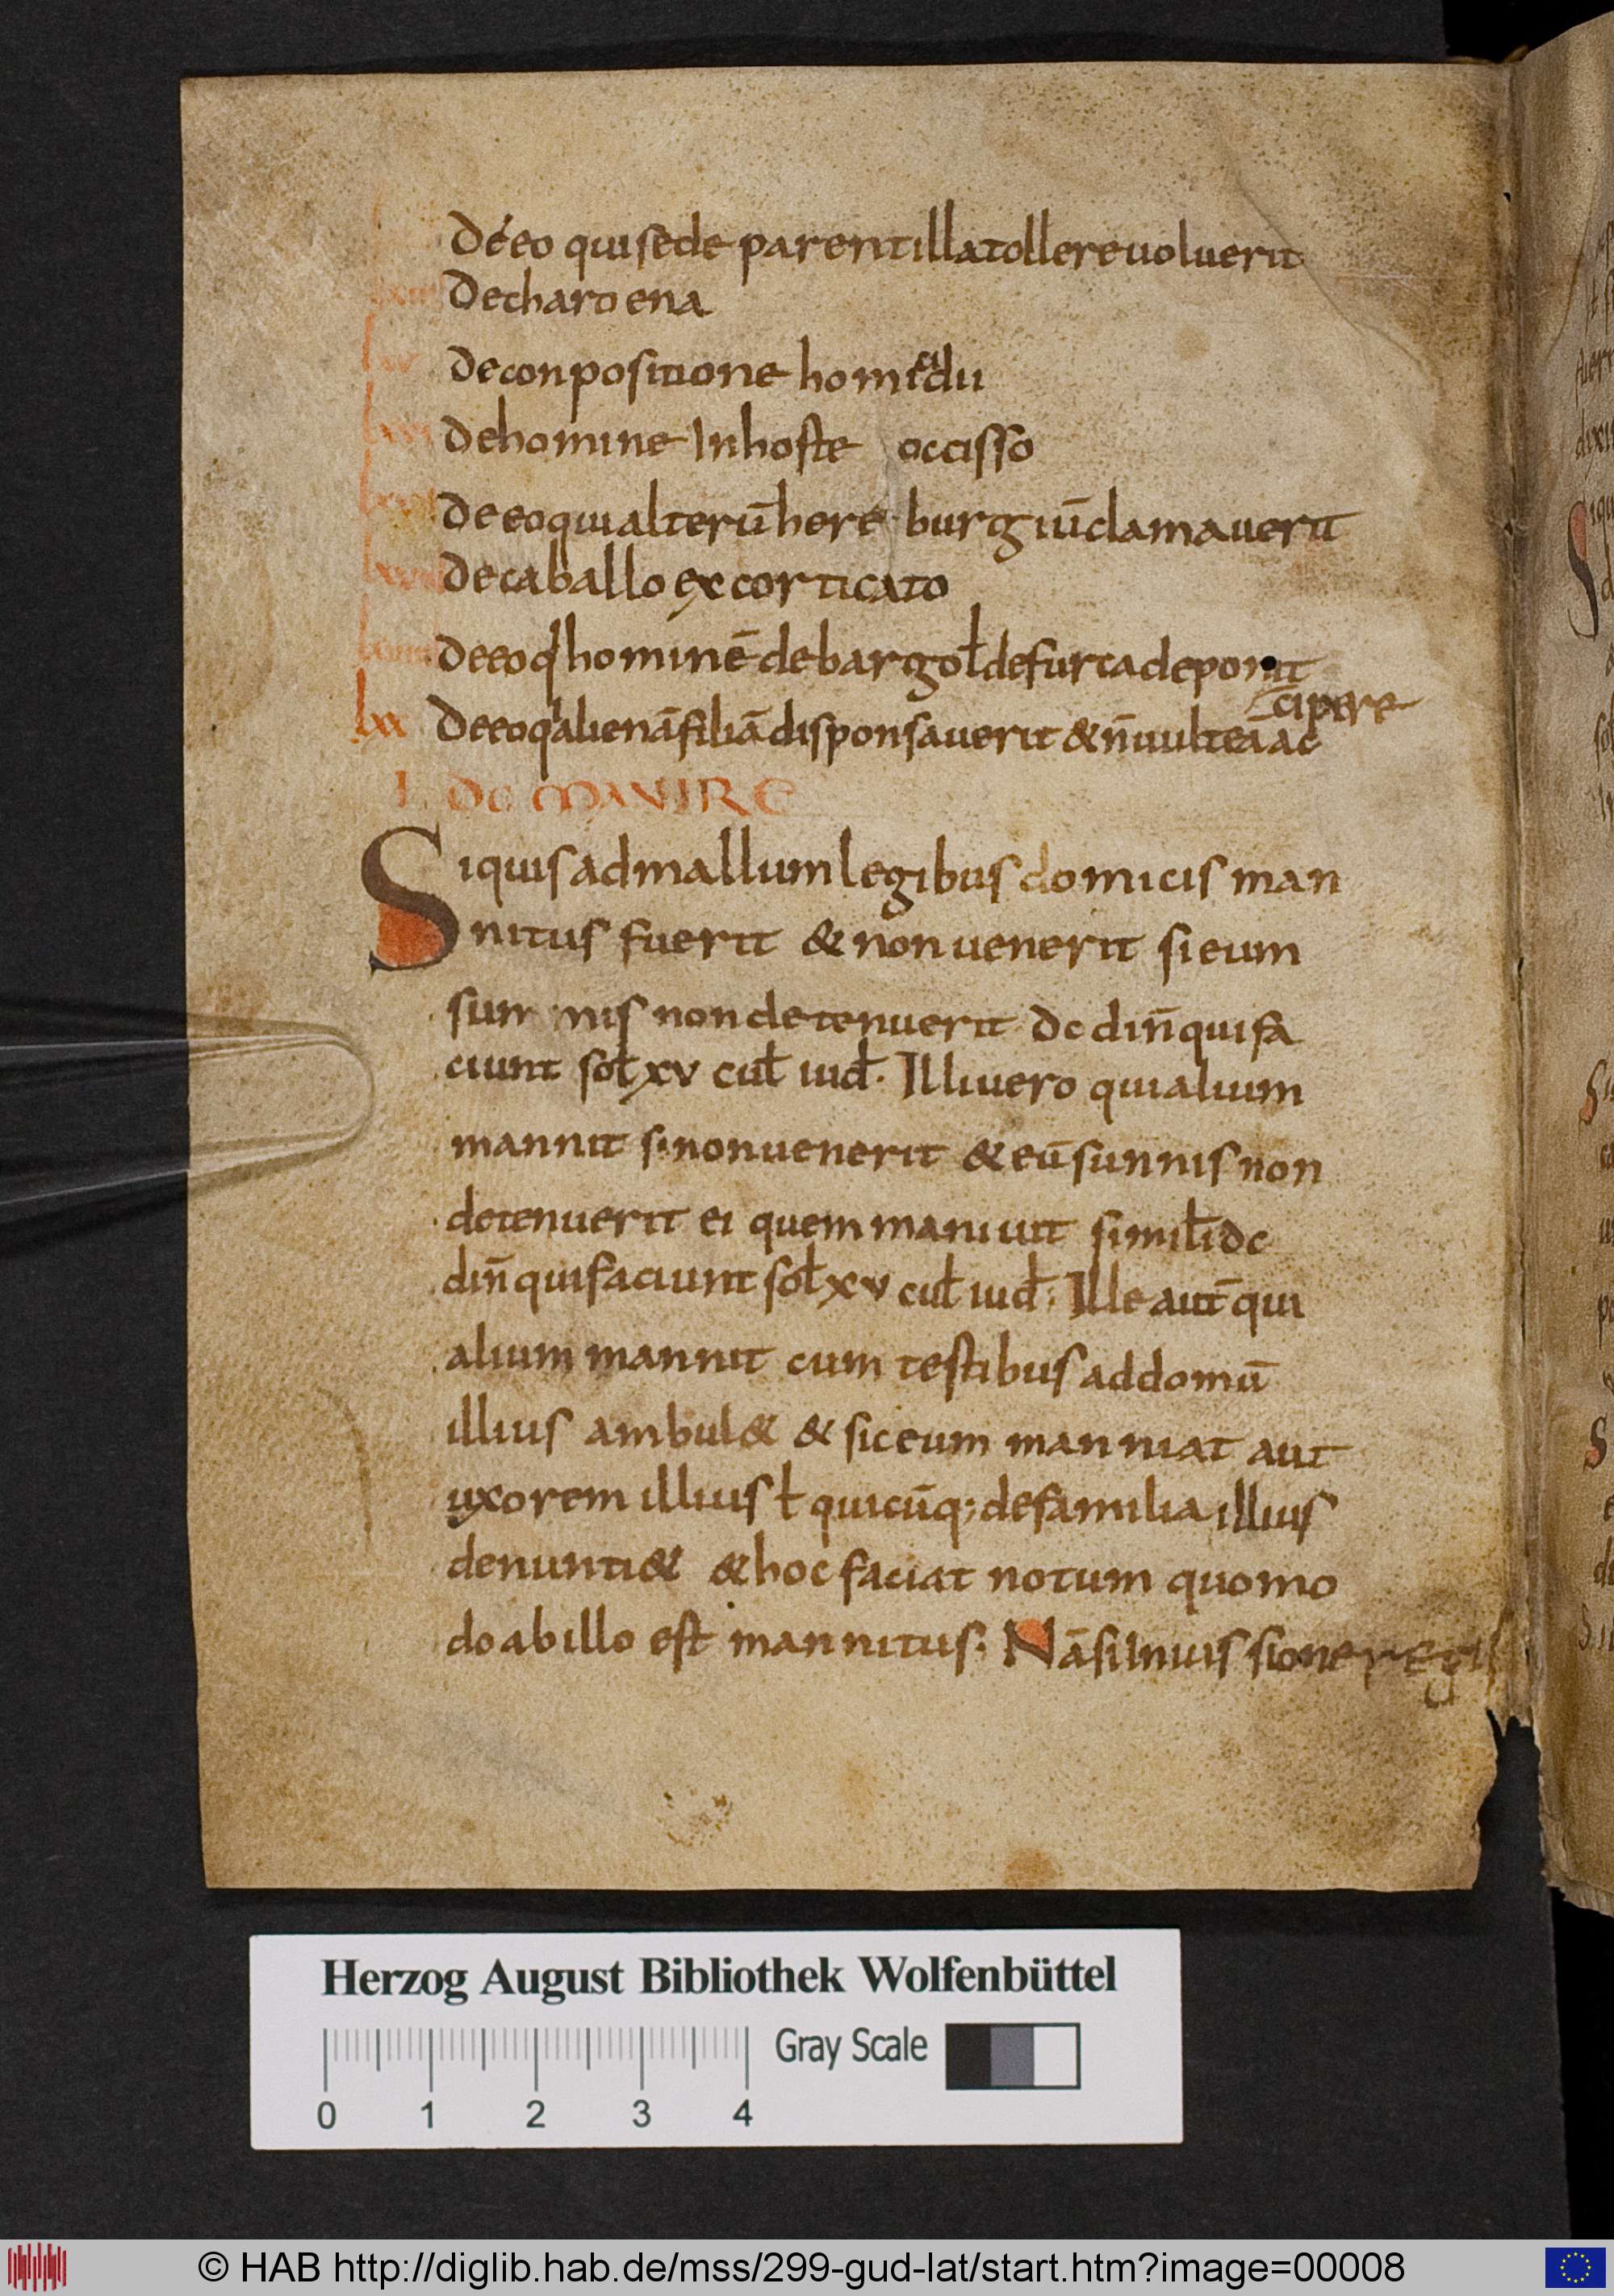 De eo qui se de parentilla tollere voluerit
De charoena
lxv De conpositione homicidii
lxvi De homine In hoste occisso
De eo qui alterū here burgiū clamaverit
De caballo excorticato
De eo q hominē de bargo ł de furca deponit
cipere
lxx De eo q alienā filiā disponsaverit & n̄ vult eā ac
I. DE MANIRE
Si quis ad mallum legibus domicis man
nitus fuerit & non venerit si eum
sunnis non detenuerit dc din̄ qui fa
ciunt sol xv cul iud. Illi vero qui alium
mannit si non venerit & eū sunnis non
detenuerit ei quem manivit simil i dc
din̄ qui faciunt sol xv cul iud. Ille aut̄ qui
alium mannit cum testibus ad domū
illius ambul& & sic eum manniat aut
uxorem illius ł quicūq; de familia illius
denunti& & hoc faciat notum quomo
do ab illo est mannitus. Nā si In iussione regis
Herzog August Bibliothek Wolfenbüttel
Gray Scale
0 1 2 3 4
© HAB http://diglib.hab.de/mss/299-gud-lat/start.htm?image=00008